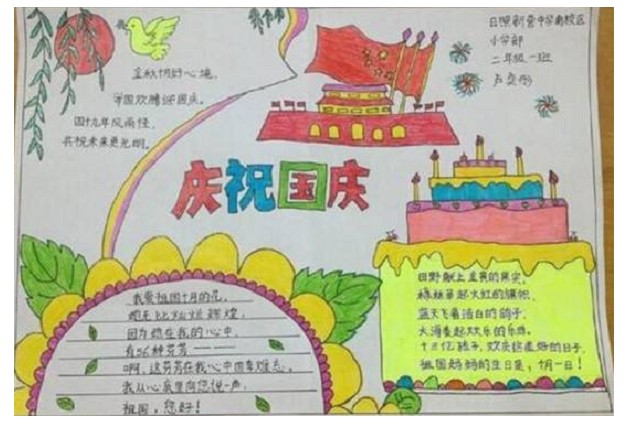 金秋十月好心境,
举国欢腾迎国庆。
四十九年风雨程,
共祝未来更光明。
日照新营中学南校区
小学部
二年级一班
庆祝国庆
我爱祖国十月的花,
她是比灿烂辉煌,
因为她在我的心中,
有56种芬芳
啊,这芬芳在我心中回牵难忘,
我从心底里向您说一声,
祖国,您好!
田野献上金黄的果实,
枫林举起火红的旗帜,
蓝天飞着洁白的鸽子,
大海奏起欢乐的乐曲。
十三亿孩子,欢庆您的日子,
祖国妈妈的生日是,十月一日!